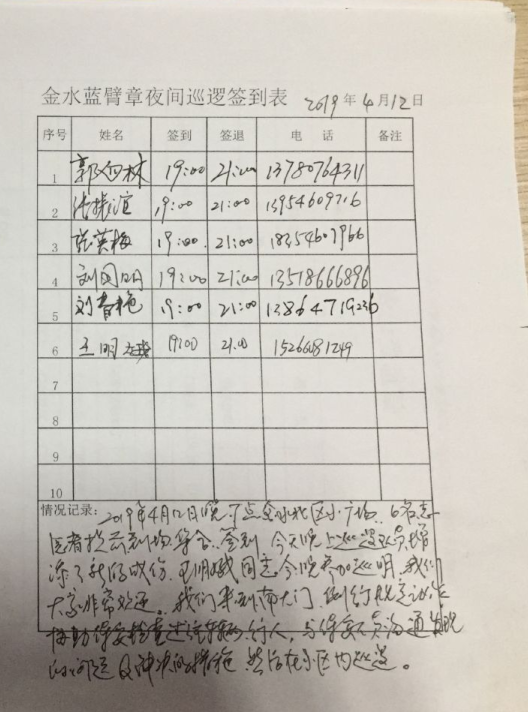 金水蓝臂章夜间巡逻签到表 2019年4月12日
序号 姓名 签到 签退 电 话 备注
1 郭四林 19:00 21:00 13780764311
2 张振谊 19:00 21:00 13954609716
3 张英梅 19:00 21:00 18354607966
4 刘国明 19:00 21:00 13518666896
5 刘春艳 19:00 21:00 13864719236
6 王明娥 19:00 21:00 15266081249
7
8
9
10
情况记录: 2019年4月12日晚7点金水北区小广场, 6名志
医者按点到场集合、签到 今天晚上巡逻队员增
添了新的成份, 王明娥同志今晚参加巡明, 我们
大家非常欢迎。我们来到南大门, 例行规定
协助保安检查进 车辆、行人, 与保安人员沟通发现
的问题及 解决的措施 然后在小区内巡逻。